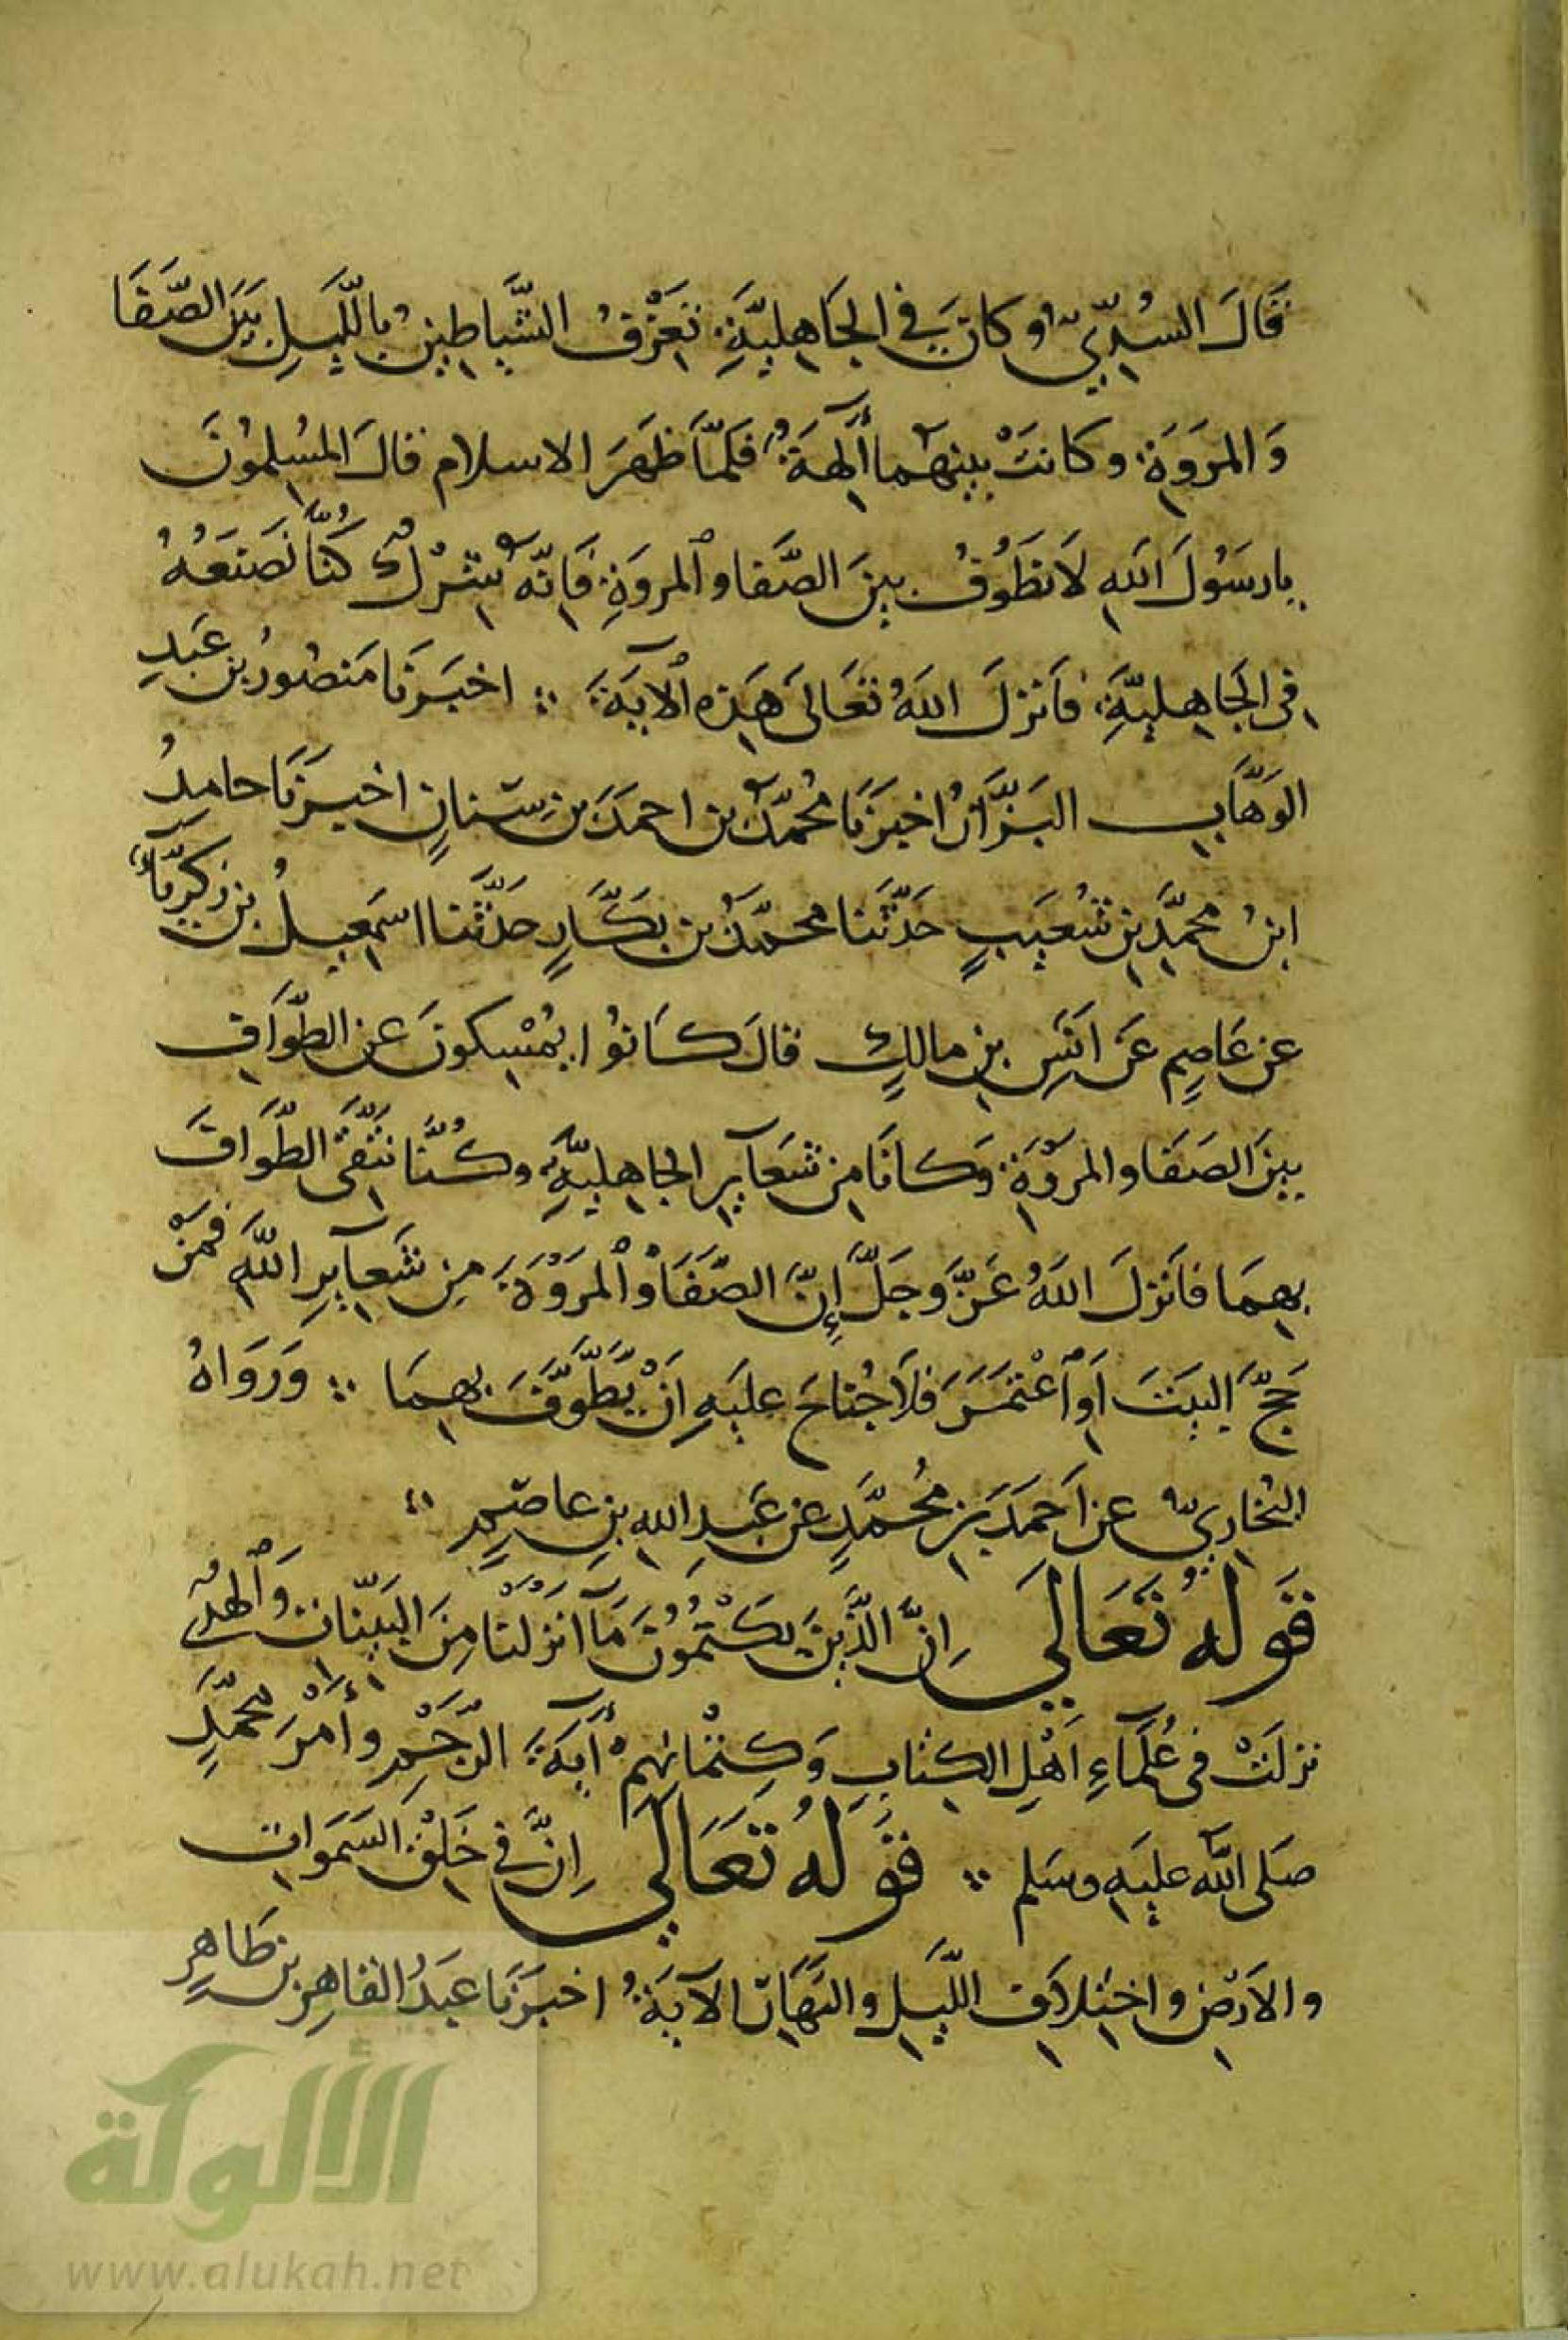 قَالَ السُّدِّيُّ وكانَ في الجَاهِليَّةِ تَعْزِفُ الشَّيَاطِينُ بِاللَّيلِ بَيْنَ الصَّفَا
وَالمَروَةِ وكانَتْ بينهُما آلِهَةٌ فَلمَّا ظَهَرَ الاسلام قالَ المُسلِمُونَ
يا رسَوُلَ اللهِ لَا نَطَوُفُ بينَ الصَّفا وٱلمروَةِ فَانّهُ شِرْكٌ كُنَّا نَصْنَعُهُ
فِى الجَاهِليَّةِ فَأَنزلَ اللهُ تَعَالىَ هَذِه ٱلآيَةَ ∴ اخبَرَنَا مَنصُورُ بن عَبدِ
الوَهَّابِ البَزَّازُ اخبَرَنَا مُحُمّدُ بن احمَدَ بنِ سِنانٍ اخبَرَنَا حامِدُ
ابنُ محمَّدِ بنِ شُعَيبٍ حَدَّثَنا محمّدُ بن بَكَّارٍ حَدَّثَنا اسمَعِيلُ بن زكرِيّاءَ
عن عَاصِمٍ عَن اَنَسِ بنِ مالِكٍ قالَ كَانوُا يُمْسِكونَ عَنِ الطَّوَافِ
بينَ الصَفَا والمَروَةِ وَكانَا مِن شَعَآيرِ الجاهِليَّةِ وكُنَّا نَتَّقىِ الطَّوَافَ
بِهِمَا فأَنزَلَ اللهُ عَزَّ وجَلَّ إِنَّ الصَّفَا وٱلمَروَةَ مِن شَعآيرِ اللهِ فَمَنْ
حَجَّ البَيتَ اَوِ ٱعْتَمَرَ فَلَا جُناحَ عليَهِ اَنْ يَطَّوَّفَ بِهِمَا ∴ وَرَوَاهُ
البُخاريُّ عن اَحمَدَ بنِ مُحُمَّدٍ عن عَبدِ اللهِ بنِ عاصِمٍ
قَولهُ تَعَالىَ اِنَّ الَّذِينَ يكَتُمُونَ مَآ انزَلنَا مِنَ البَيّنَاتِ وَٱلهدُى
نزلَتْ فى عُلَمَآءِ اَهْلِ الكِتابِ وَكِتْمانهِم آيَةَ الرَّجْمِ وأمْرَ محمَّدٍ
صَلى اللهُ عليَهِ وسَلم ∴ قَولهُ تَعَالىَ اِنَّ في خَلقِ السَمَواتِ
والاَرضِ واختِلَافِ اللَّيلِ والنَهَارِ الآيَةُ اخبَرَنَا عبَدُ القاهِرِ بن طَاهِرٍ
الألوكة
www.alukah.net